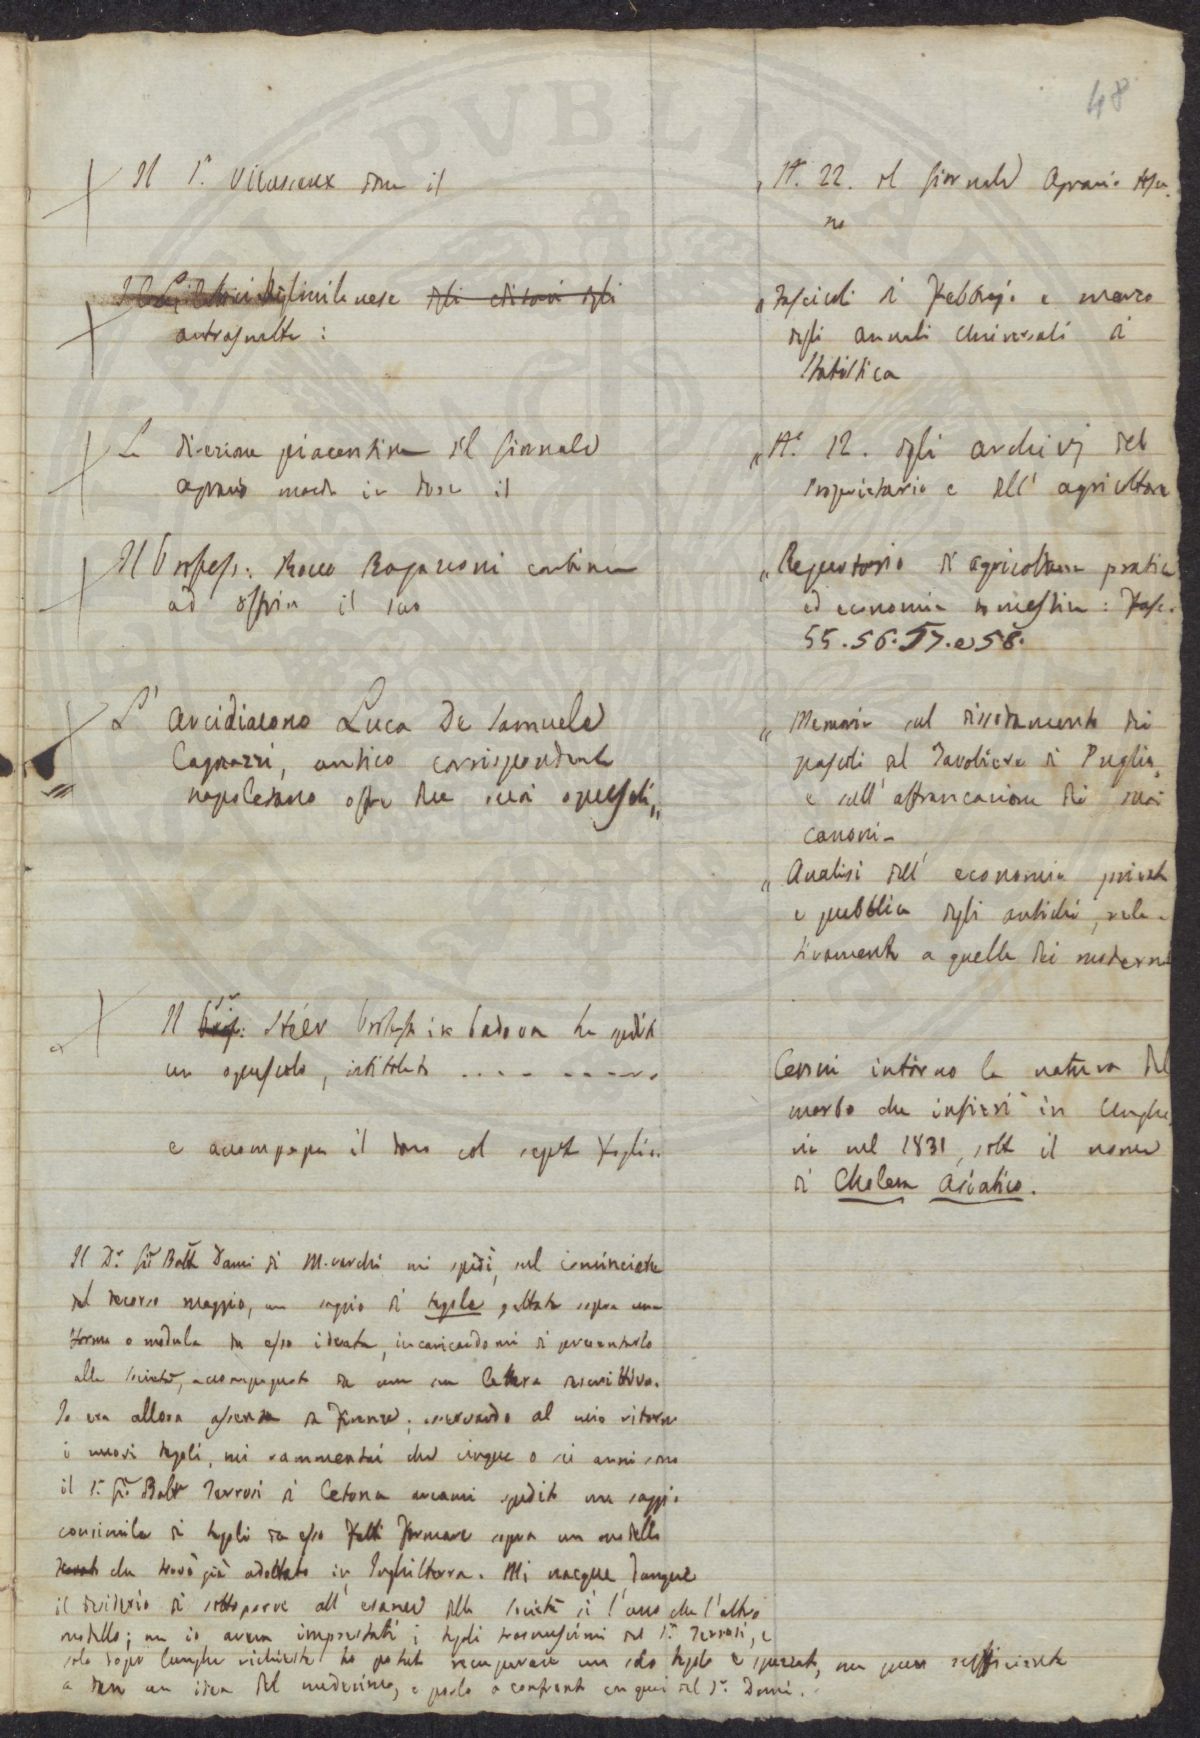 48
Il Sr. Vieusseux dona il
N. 22. del Giornale Agrario Tosca-
no
milanese degli editori degli
contrasmette:
Fascicoli di Febbrajo e marzo
degli annali Universali di
Statistica
La direzione piacentina del Giornale
agrario manda in dono il
N. 12. degli archivj del
proprietario e dell' agricoltore
Il Profess: Rocco Ragazzoni continua
ad offrire il suo
Repertorio di agricoltura pratica
ed economia domestica: Fasc.
55. 56. 57. e 58.
L' arcidiacono Luca De Samuele
Cagnazzi, antico corrispondente
napoletano offre due suoi opuscoli,,
Memoria sul dissodamento dei
pascoli del Tavoliere di Puglia,
e sull' affrancazione dei suoi
canoni-
Analisi dell' economia privata
e pubblica degli antichi, rela-
tivamente a quella dei moderni
Il Steer Profess in Padova ha spedito
un opuscolo, intitolato
Cenni intorno la natura del
morbo che infierì in Unghe-
ria nel 1831, sotto il nome
di Cholera Asiatico.
e accompagna il dono col segte foglio.
Il Dr. Gio Batta Dami di M.varchi mi spedì, sul cominciare
del decorso maggio, un saggio di tegole, gettate sopra una
forma o modula da esso ideata, incaricandomi di presentarlo
alla Società, accompagnato da una sua lettera descrittiva.
Io era allora assente da Firenze; osservando al mio ritorno
i nuovi tegoli, mi rammentai che cinque o sei anni sono
il Sr. Gio Batt Terrosi di Cetona aveami spedito un saggio
consimile di tegoli da esso fatti formare sopra un modello
che trovò già adottato in Inghilterra. Mi nacque dunque
il desiderio di sottoporre all' esame della Società sì l'uno che l'altro
modello; ma io aveva imprestati i tegoli trasmessimi dal Sr. Terrosi, e
solo dopo lunghe richieste ho potuto recuperare un solo tegolo e spezzato, ma pure sufficiente
a dare un idea del medesimo, e porlo a confronto con quei del Sr. Dami.